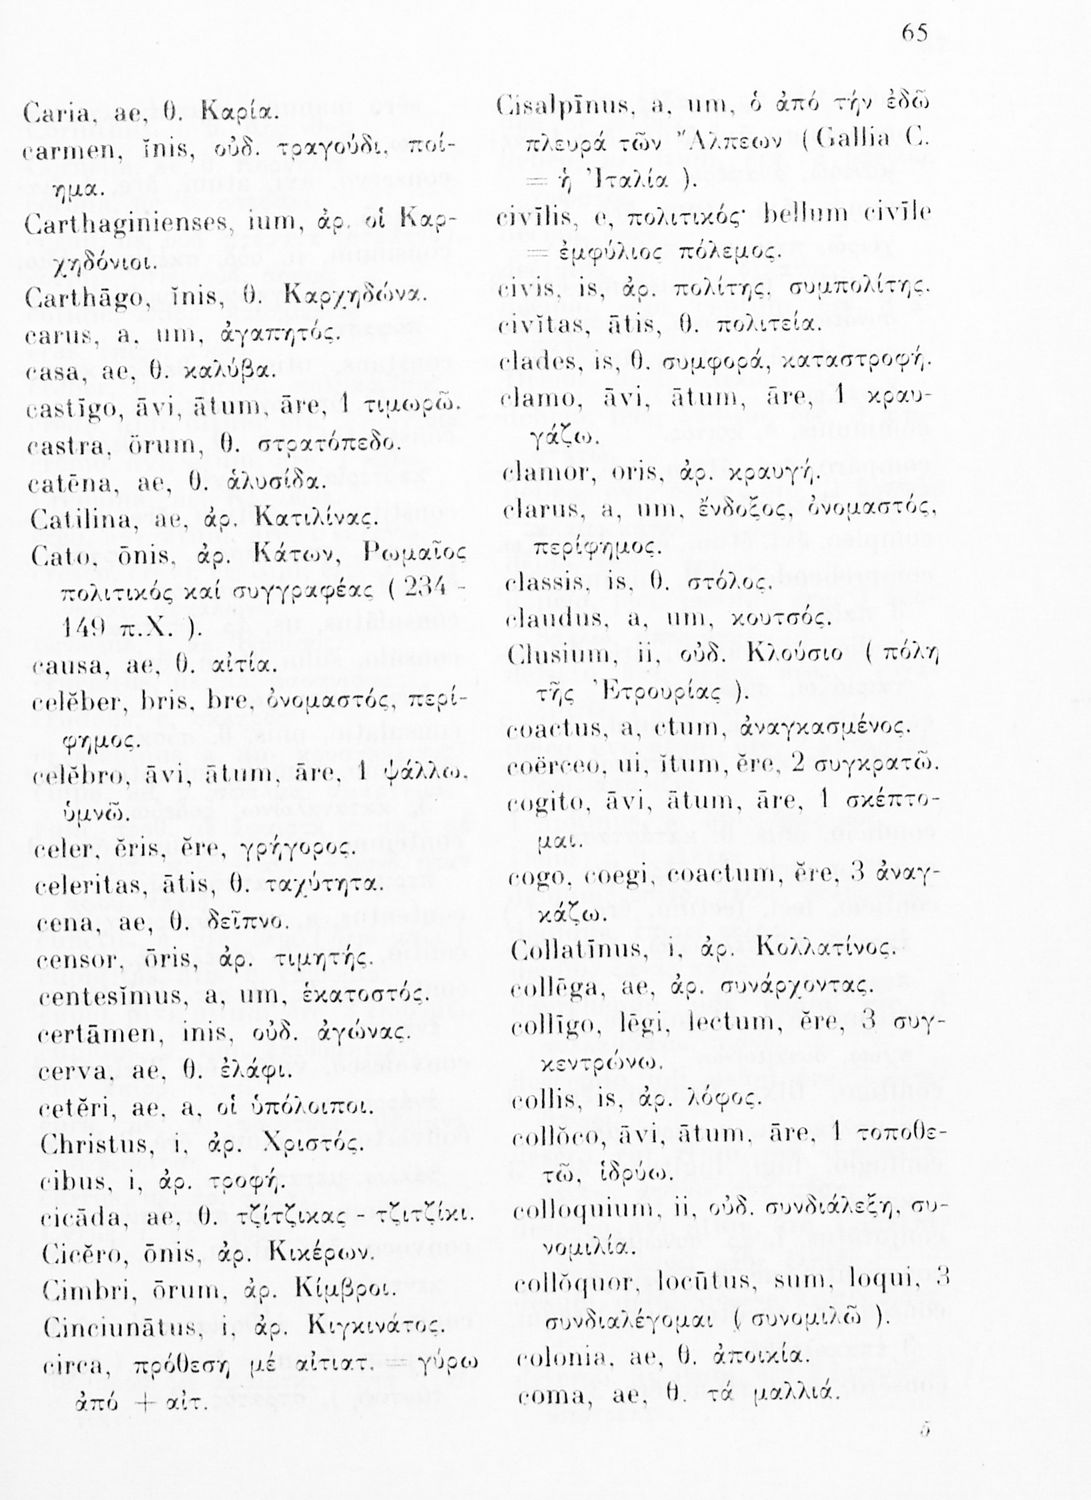 65
Caria, ae, θ. Καρία.
carmen, ĭnis, οὐδ. τραγούδι, ποί-
ημα.
Carthaginienses, ium, ἀρ. οἱ Καρ-
χηδόνιοι.
Carthāgo, ĭnis, θ. Καρχηδώνα.
carus, a, um, ἀγαπητός.
casa, ae, θ. καλύβα.
castīgo, āvi, ātum, āre, 1 τιμωρῶ.
castra, ōrum, θ. στρατόπεδο.
catēna, ae, θ. ἁλυσίδα.
Catilina, ae, ἀρ. Κατιλίνας.
Cato, ōnis, ἀρ. Κάτων, Ρωμαῖος
πολιτικός καί συγγραφέας ( 234 -
149 π.Χ. ).
causa, ae, θ. αἰτία.
celĕber, bris, bre, ὀνομαστός, περί-
φημος.
celĕbro, āvi, ātum, āre, 1 ψάλλω,
ὑμνῶ.
celer, ĕris, ĕre, γρήγορος.
celeritas, ātis, θ. ταχύτητα.
cena, ae, θ. δεῖπνο.
censor, ōris, ἀρ. τιμητής.
centesĭmus, a, um, ἑκατοστός.
certāmen, inis, οὐδ. ἀγώνας.
cerva, ae, θ. ἐλάφι.
cetĕri, ae, a, οἱ ὑπόλοιποι.
Christus, i, ἀρ. Χριστός.
cibus, i, ἀρ. τροφή.
cicāda, ae, θ. τζίτζικας - τζιτζίκι.
Cicĕro, ōnis, ἀρ. Κικέρων.
Cimbri, ōrum, ἀρ. Κίμβροι.
Cinciunātus, i, ἀρ. Κιγκινάτος.
circa, πρόθεση μέ αἰτιατ. = γύρω
ἀπό + αἰτ.
Cisalpīnus, a, um, ὁ ἀπό τήν ἐδῶ
πλευρά τῶν Ἄλπεων ( Gallia C.
= ἡ Ἰταλία ).
civīlis, e, πολιτικός· bellum civīle
= ἐμφύλιος πόλεμος.
civis, is, ἀρ. πολίτης, συμπολίτης.
civĭtas, ātis, θ. πολιτεία.
clades, is, θ. συμφορά, καταστροφή.
clamo, āvi, ātum, āre, 1 κραυ-
γάζω.
clamor, oris, ἀρ. κραυγή.
clarus, a, um, ἔνδοξος, ὀνομαστός,
περίφημος.
classis, is, θ. στόλος.
claudus, a, um, κουτσός.
Clusium, ii, οὐδ. Κλούσιο ( πόλη
τῆς Ἐτρουρίας ).
coactus, a, ctum, ἀναγκασμένος.
coërceo, ui, ĭtum, ĕre, 2 συγκρατῶ.
cogito, āvi, ātum, āre, 1 σκέπτο-
μαι.
cogo, coegi, coactum, ĕre, 3 ἀναγ-
κάζω.
Collatīnus, i, ἀρ. Κολλατίνος.
collēga, ae, ἀρ. συνάρχοντας.
collīgo, lēgi, lectum, ĕre, 3 συγ-
κεντρώνω.
collis, is, ἀρ. λόφος.
collŏco, āvi, ātum, āre, 1 τοποθε-
τῶ, ἱδρύω.
colloquium, ii, οὐδ. συνδιάλεξη, συ-
νομιλία.
collŏquor, locūtus, sum, loqui, 3
συνδιαλέγομαι ( συνομιλῶ ).
colonia, ae, θ. ἀποικία.
coma, ae, θ. τά μαλλιά.
5